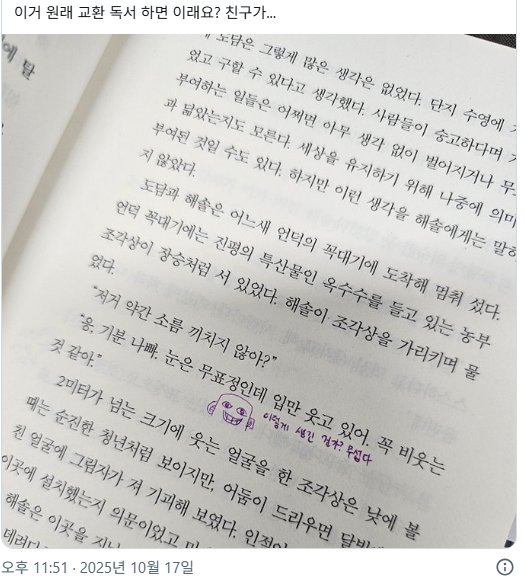 이거 원래 교환 독서 하면 이래요? 친구가...
에 달
도담은 그렇게 많은 생각은 없었다. 단지 수영에
었고 구할 수 있다고 생각했다. 사람들이 숭고하다며
부여하는 일들은 어쩌면 아무 생각 없이 벌어지거나
과 닮았는지도 모른다. 세상을 유지하기 위해 나중에 의미
부여된 것일 수도 있다. 하지만 이런 생각을 해솔에게는
지 않았다.
도담과 해솔은 어느새 언덕의 꼭대기에 도착해 멈춰 섰다.
언덕 꼭대기에는 진평의 특산물인 옥수수를 들고 있는 농부
조각상이 장승처럼 서 있었다. 해솔이 조각상을 가리키며 물
었다.
“저거 약간 소름 끼치지 않아?”
“응. 기분 나빠. 눈은 무표정인데 입만 웃고 있어. 꼭 비웃는
것 같아.”
이렇게 생긴 걸까? 무섭다
2미터가 넘는 크기에 웃는 얼굴을 한 조각상은 낮에 볼
때는 순진한 청년처럼 보이지만, 어둠이 드리우면
친 얼굴에 그림자가 져 기괴해 보였다.
이곳에 설치했는지 의문이었고
해솔은 이곳을
오후 11:51 · 2025년 10월 17일